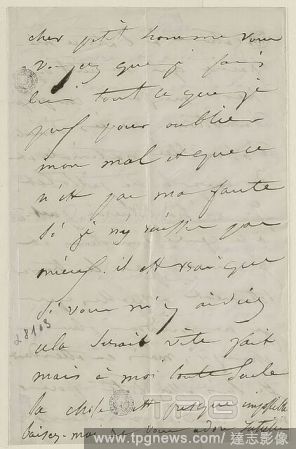 cher petit homme vous
voyez que je fais
bien tout ce que je
puis pour oublier
mon mal et que ce
n'est pas ma faute
si je n'y réussis pas
mieux. il est vrai que
si vous m'y aidiez
cela serait vite fait
mais à moi toute seule
la chose est presque impossible
baisez-moi je vous adore
28103
www.tpgnews.com / 達志影像